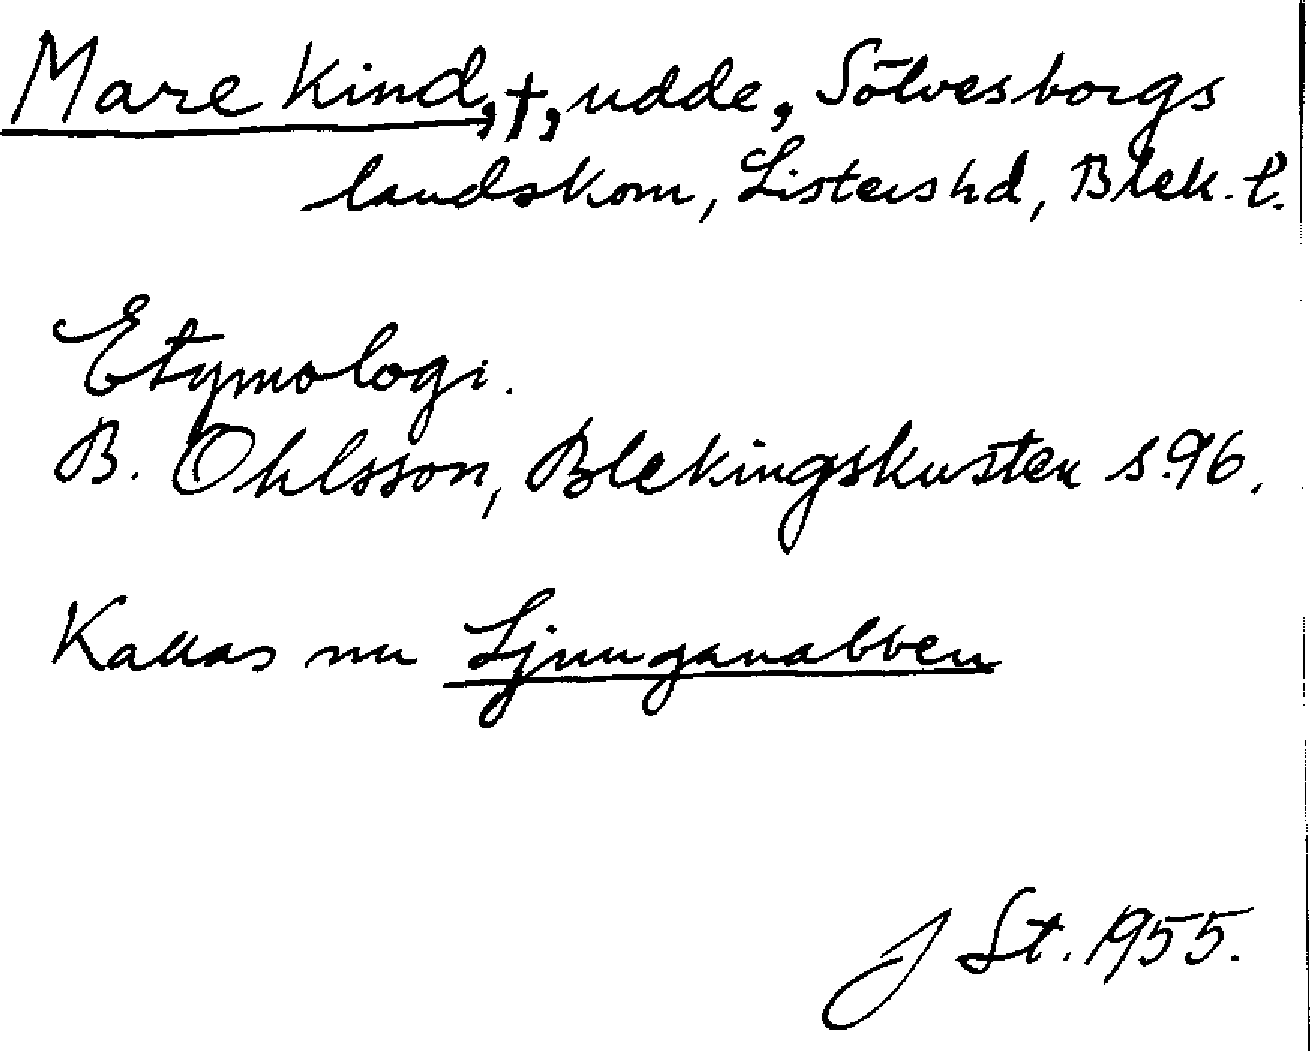 Mare kind, †, udde, Sölvesborgs
landskom, Listers hd, Blek. l.
Etymologi.
B. Ohlsson, Blekingskusten s. 96.
Kallas nu Ljunganabben
J St. 1955.